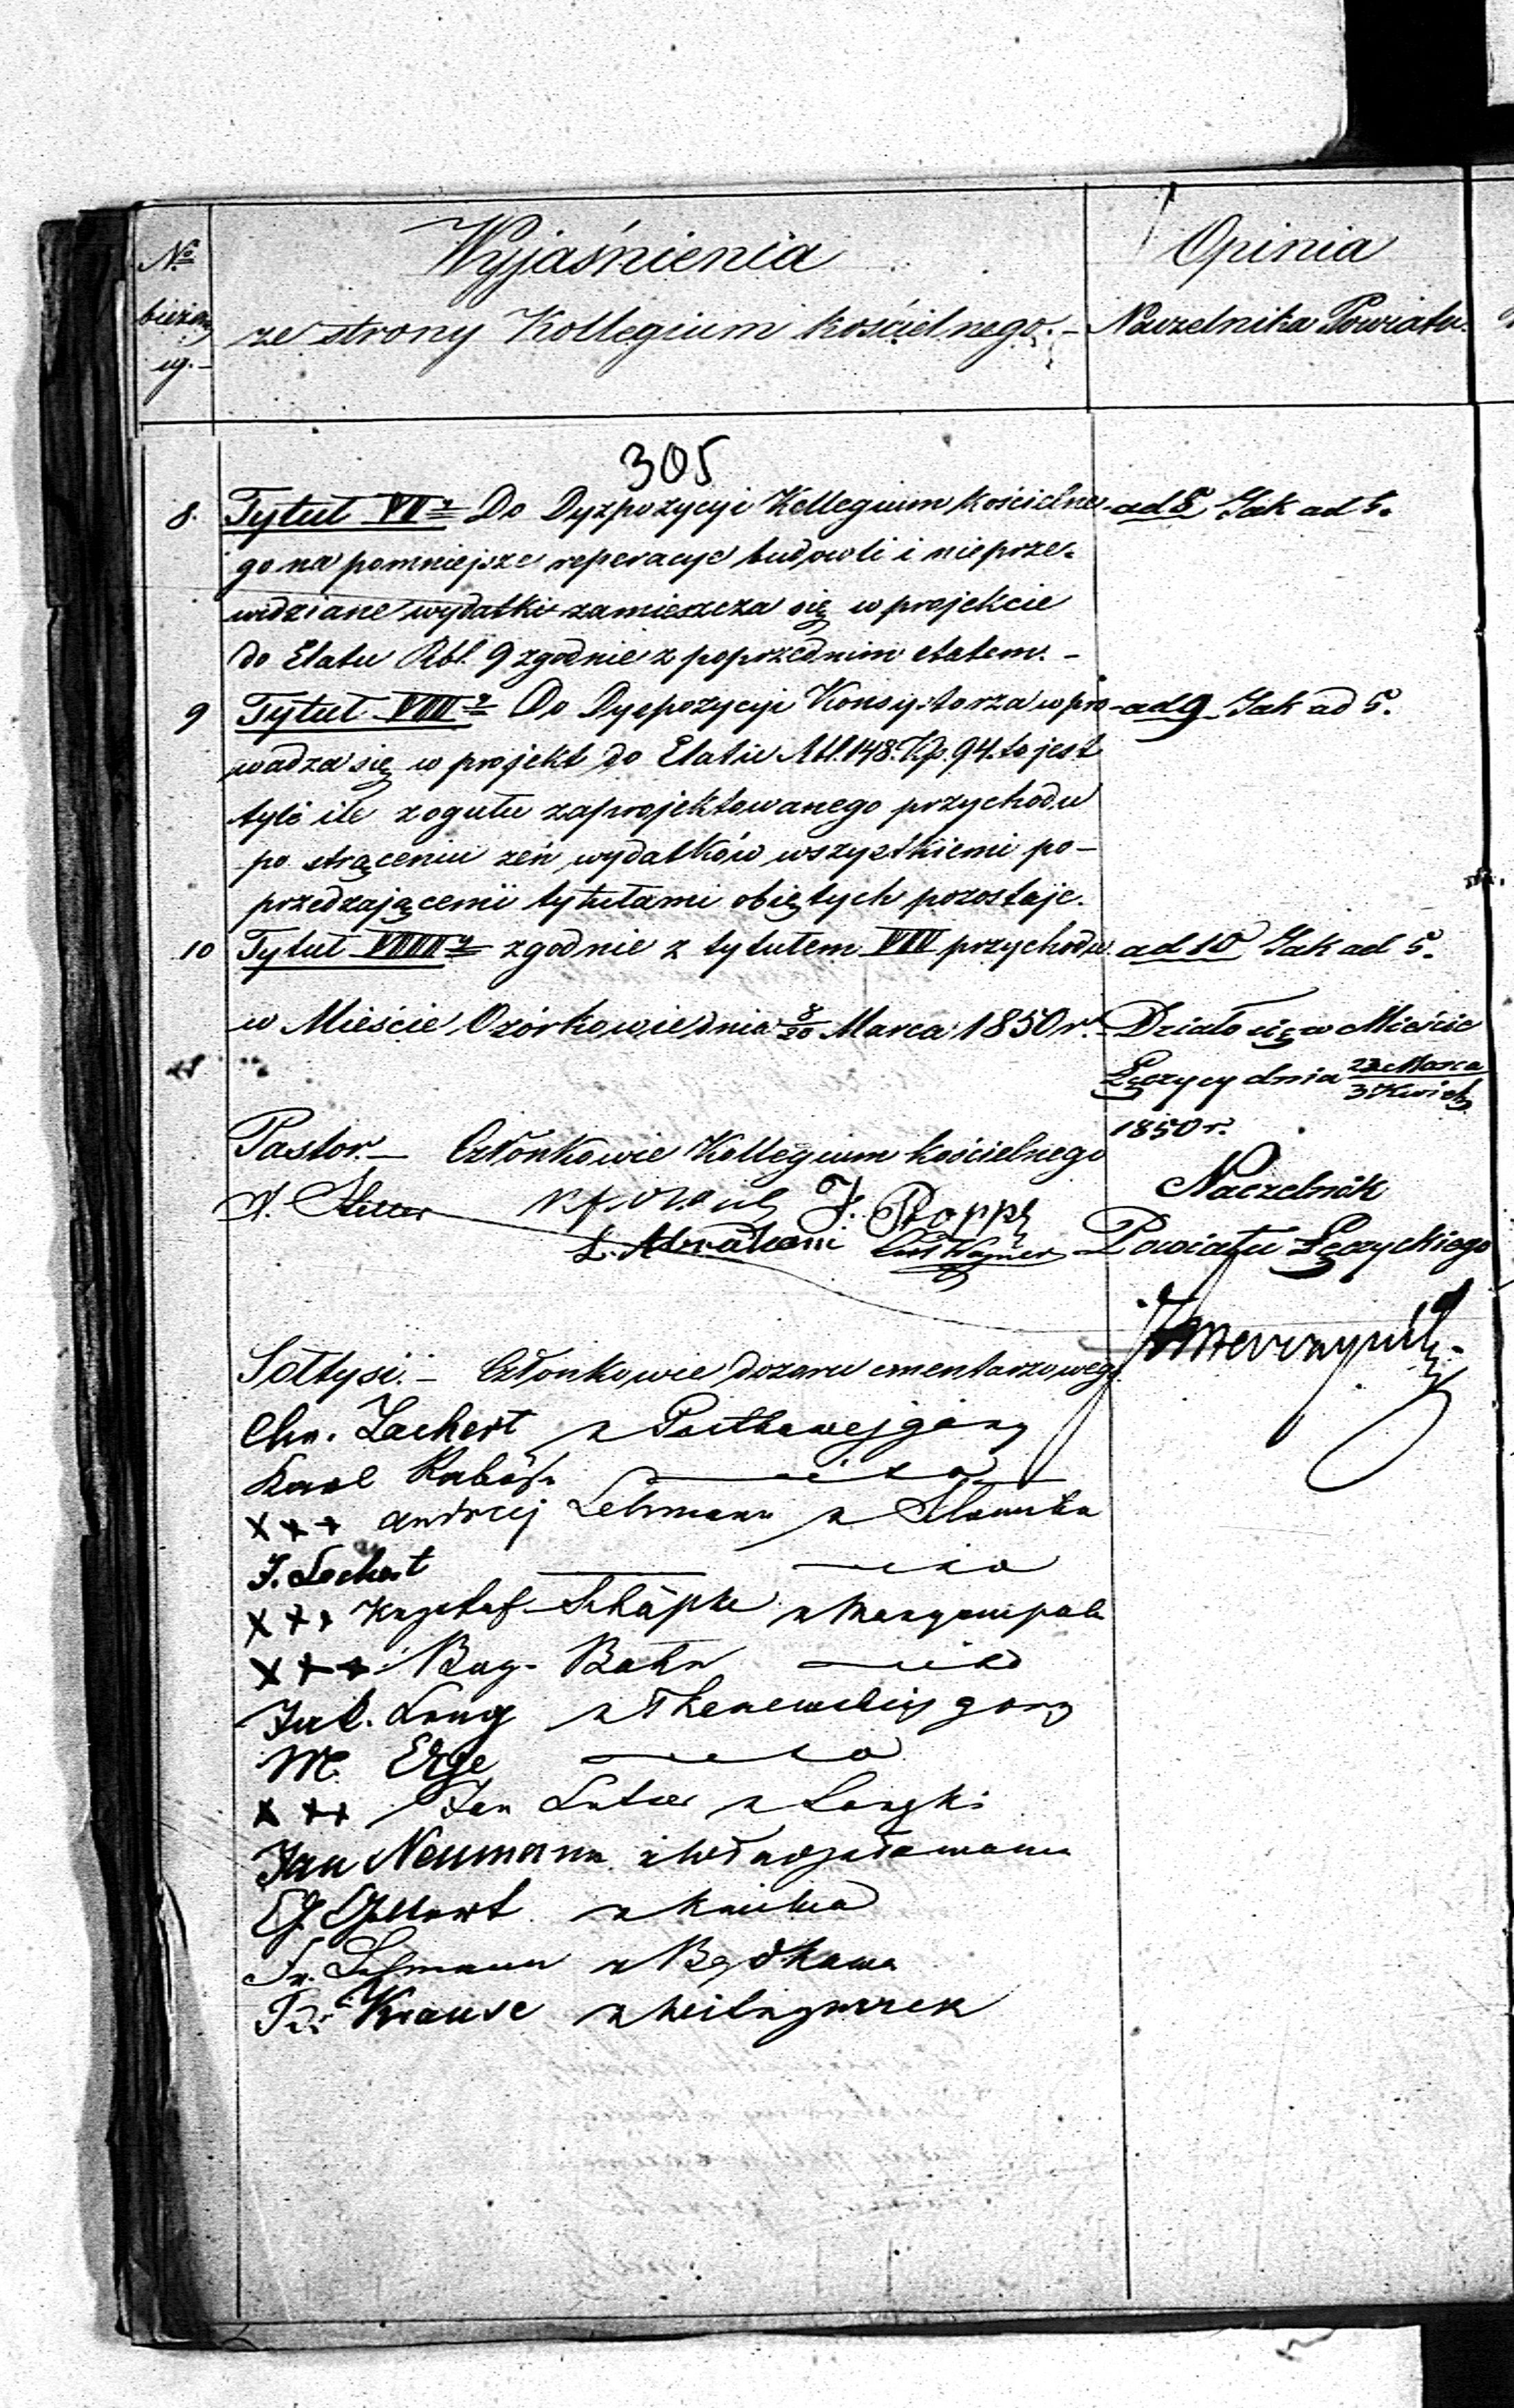 No
bieżący
Wyjaśnienia
ze strony Kollegium kościelnego.-
Opinia
Naczelnika Powiatu.
305
8. Tytuł VIIy Do Dyzpozycyi Kollegium Kościelne-
go na pomniejsze reperacye budowli i nieprze-
widziane wydatki zamieszcza się w projekcie
do Etatu Rbl. 9 zgodnie z poprzednim etatem.-
ad 8 Jak ad 5.
9 Tytuł VIIIy Do Dyspozycyi Konsystorza wpro-
wadza się w projekt do Etatu Rbl. 148. Kp. 94. to jest
tyle ile z ogułu zaprojektowanego przychodu
po strąceniu zeń wydatków wszystkiemi po-
przedzającemi tytułami objętych pozostaje.
ad 9 Jak ad 5.
10 Tytuł VIIIIy zgodnie z tytułem VIII przychodu.
ad 10 Jak ad 5.
w Mieście Ozórkowie dnia 8/20 Marca 1850 r.
Działo się w Mieście
Łęczycy dnia 22 Marca/3 Kwiet.
1850 r.
Pastor.- Członkowie Kollegium kościelnego
J. Poppe
L. Abraham Wagner
Naczelnik
Powiatu Łęczyckiego
Sołtysi.- Członkowie dozoru cmentarzowego
Chr. Lachert
Karol
+++ Andrzej Lehmann z
J. Lechert
+++ Krysztof Schäpke z
+++ Bog. Bahn
Jak. Lang z góry
M. Erge
+++ Jan z
Jan Neumann z
z
Fr. Lehmann z Będkowa
Krause z